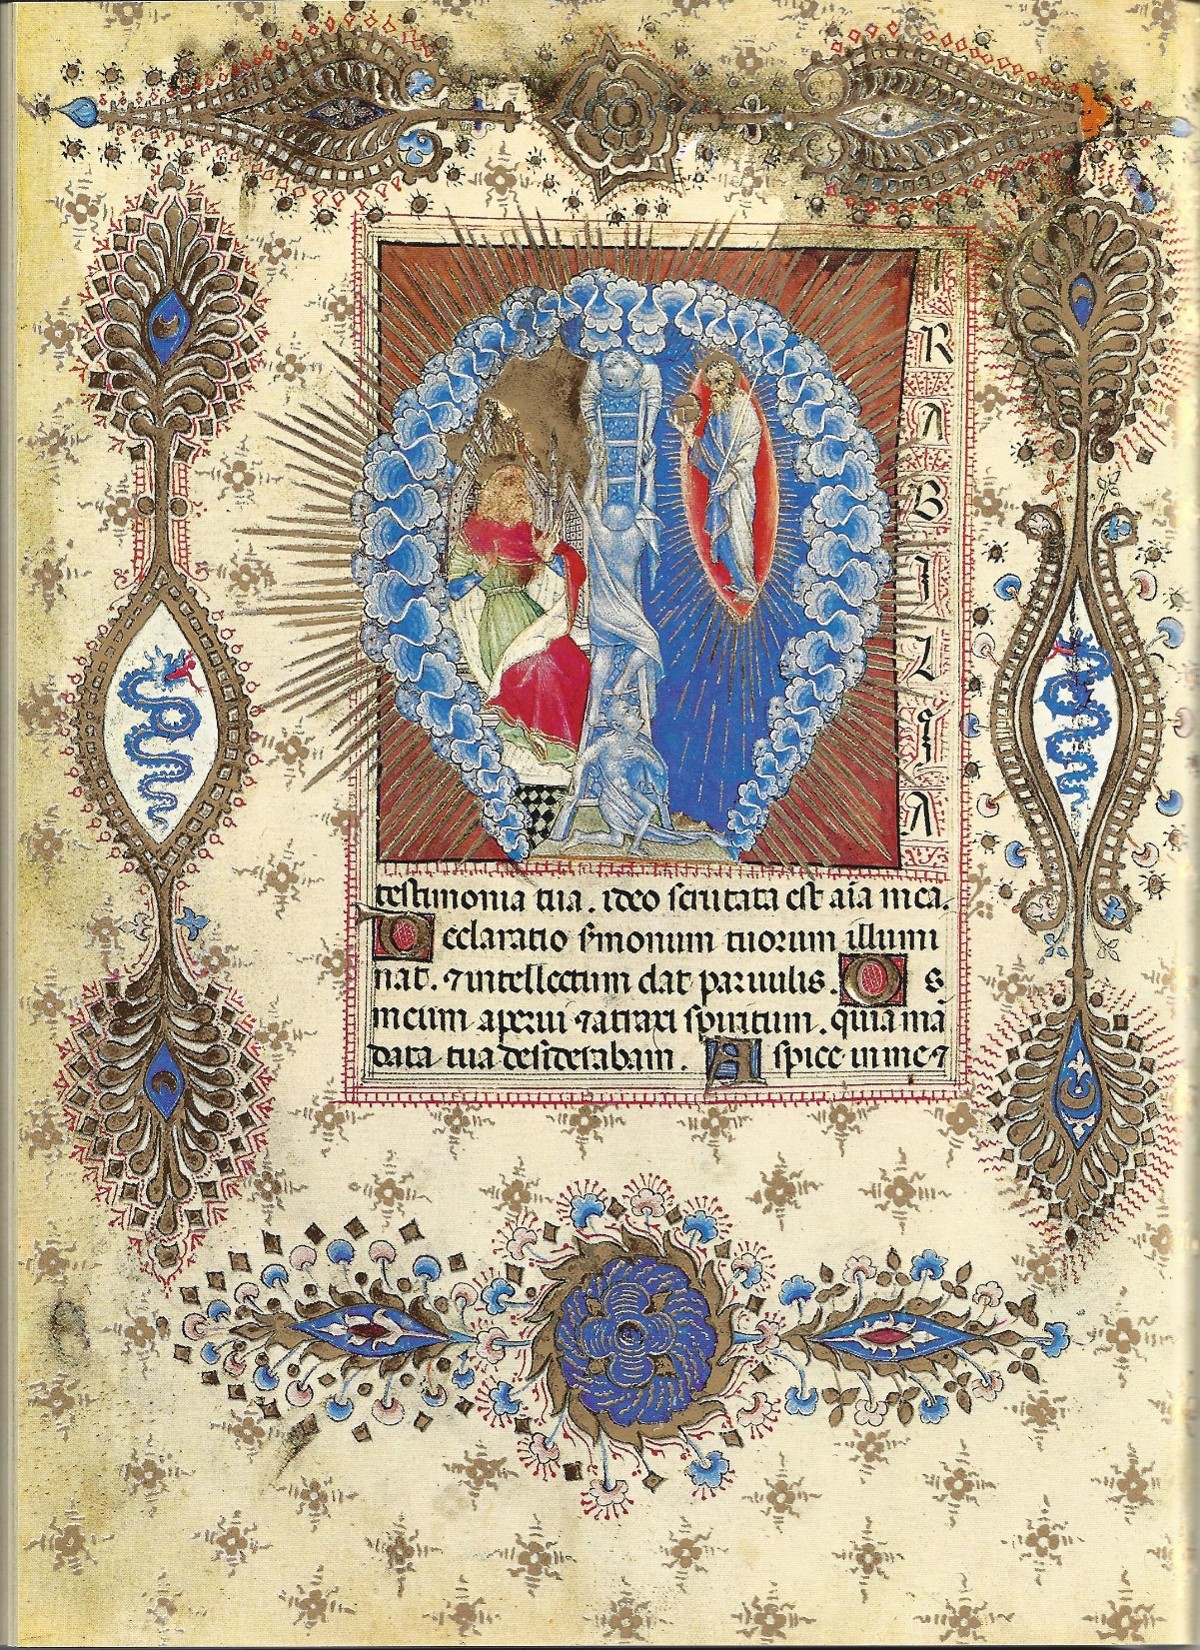 RABILIA
testimonia tua. ideo scrutata est aia mea.
Declaratio smonum tuorum illumi
nat. ⁊ intellectum dat paruulis. Os
meum aperui ⁊ atraxi spiritum. quia mā
data tua desiderabam. Aspice in me ⁊